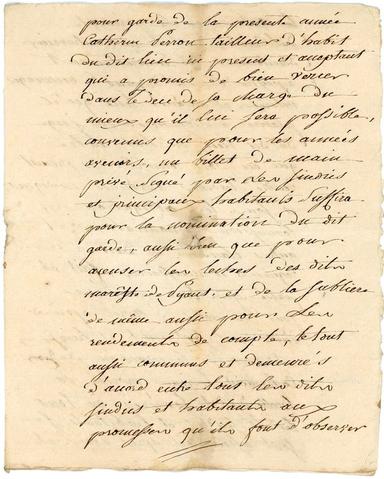 pour garde de la presente année
Catherin Perron tailleur d'habit
du dit lieu icy present et acceptant
qui a promis de bien verser
dans le deu de sa charge du
mieux qu'il luy sera possible,
convenus que pour les années
avenirs, un billet de main
privé signé par les sindics
et principaux habitants suffira
pour la nomination du dit
garde, aussi bien que pour
les des dits
de et de la
de même aussi pour les
rendements de compte, le tout
aussi convenus et demeurés
d'acord entre tous les dits
sindics et habitants aux
promesses qu'ils font d'observer